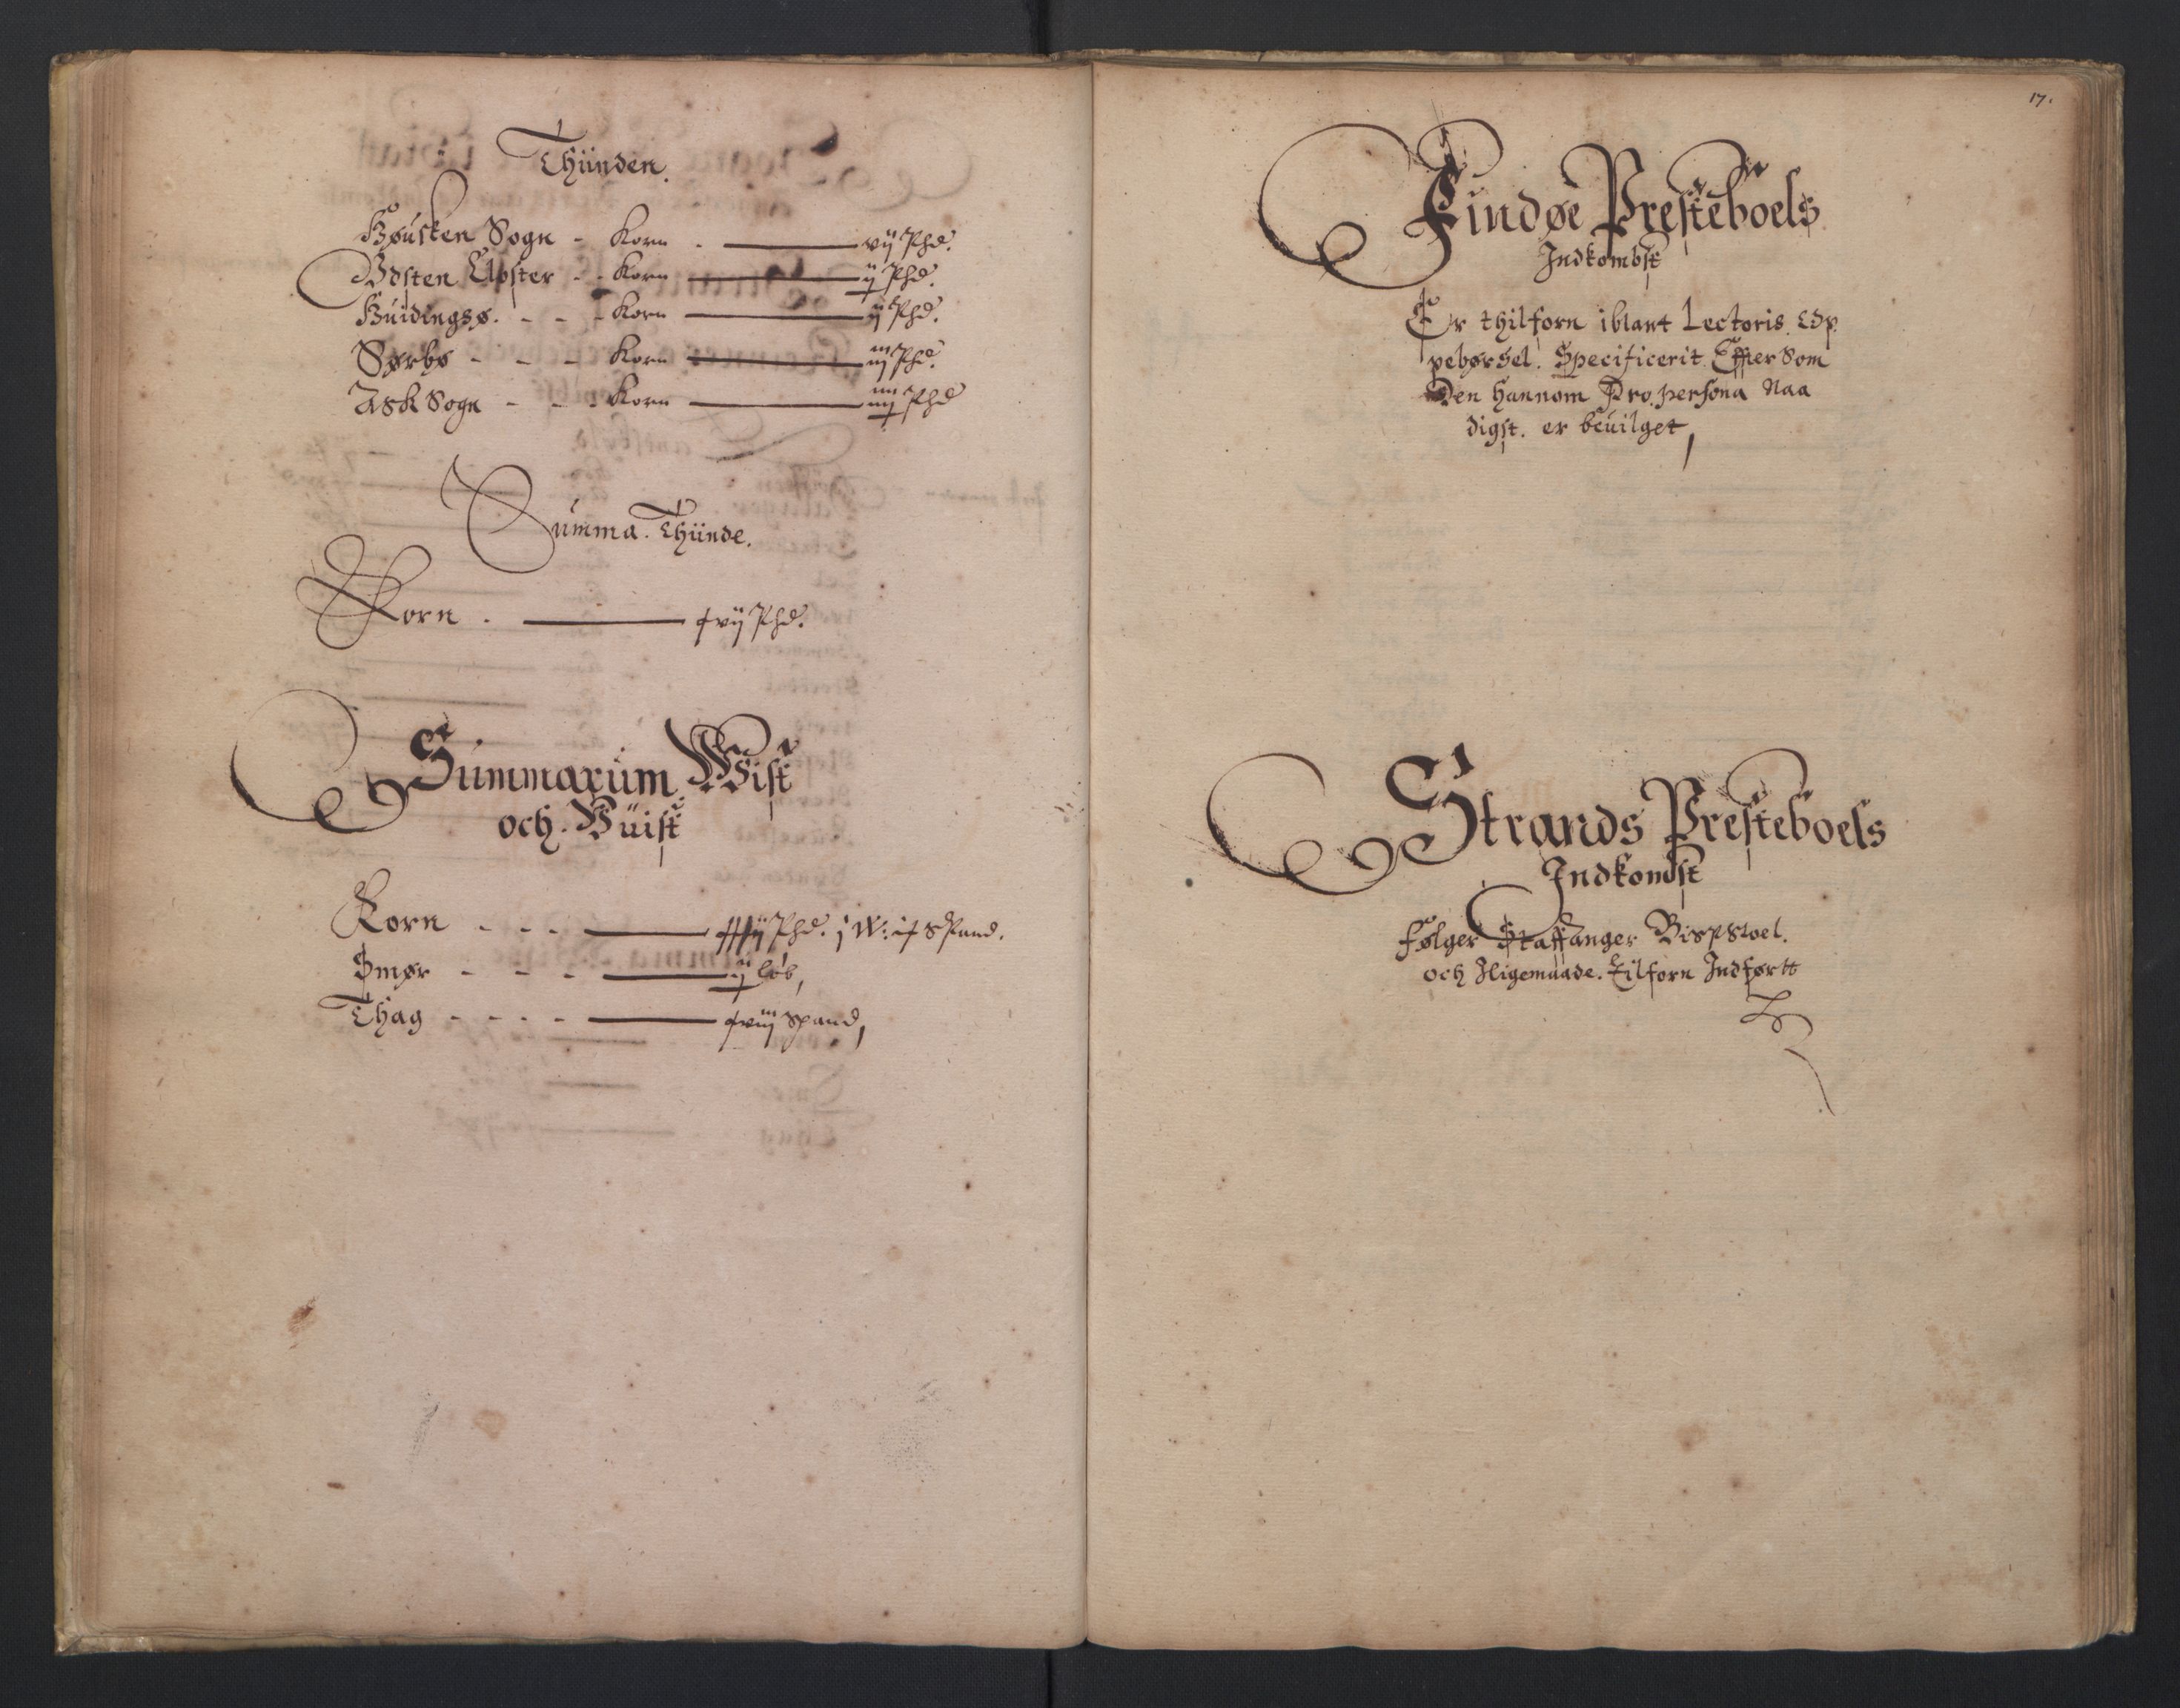 Thünden.
Bøusken Sogn - Korn - vij Phd.
Vdsten Closter - - Korn ij Phd.
Huidingsø. - - - Korn ij Phd.
Sørbø - - - Korn iij Phd.
Ask Sogn - - - Korn iiij Phd
Summa. Thünde.
Korn . xvij Phd.
Summarum Wist
och. Vüist
Korn - - - xxxxij Phd. j W: ix Spand.
Smør - - - - ij løb,
Thag - - - - xviij spand,
17.
Findøe Presteboels
Indkombst
Er thilforn iblant Lectoris. Op
pebørsel. Specificerit Effter som
Den hannom Pro persona Naa
digst. er beuilget,
Strands Presteboels
Indkomst
Følger Staffanger Bispstoel.
och Iligemaade. tilforn Indførtt